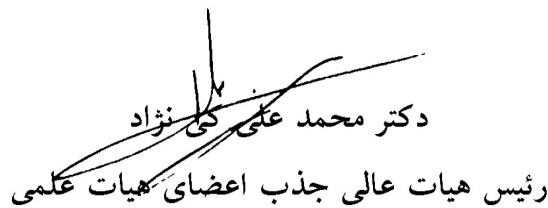 دکتر محمد علی کی نژاد
رئیس هیات عالی جذب اعضای هیات علمی